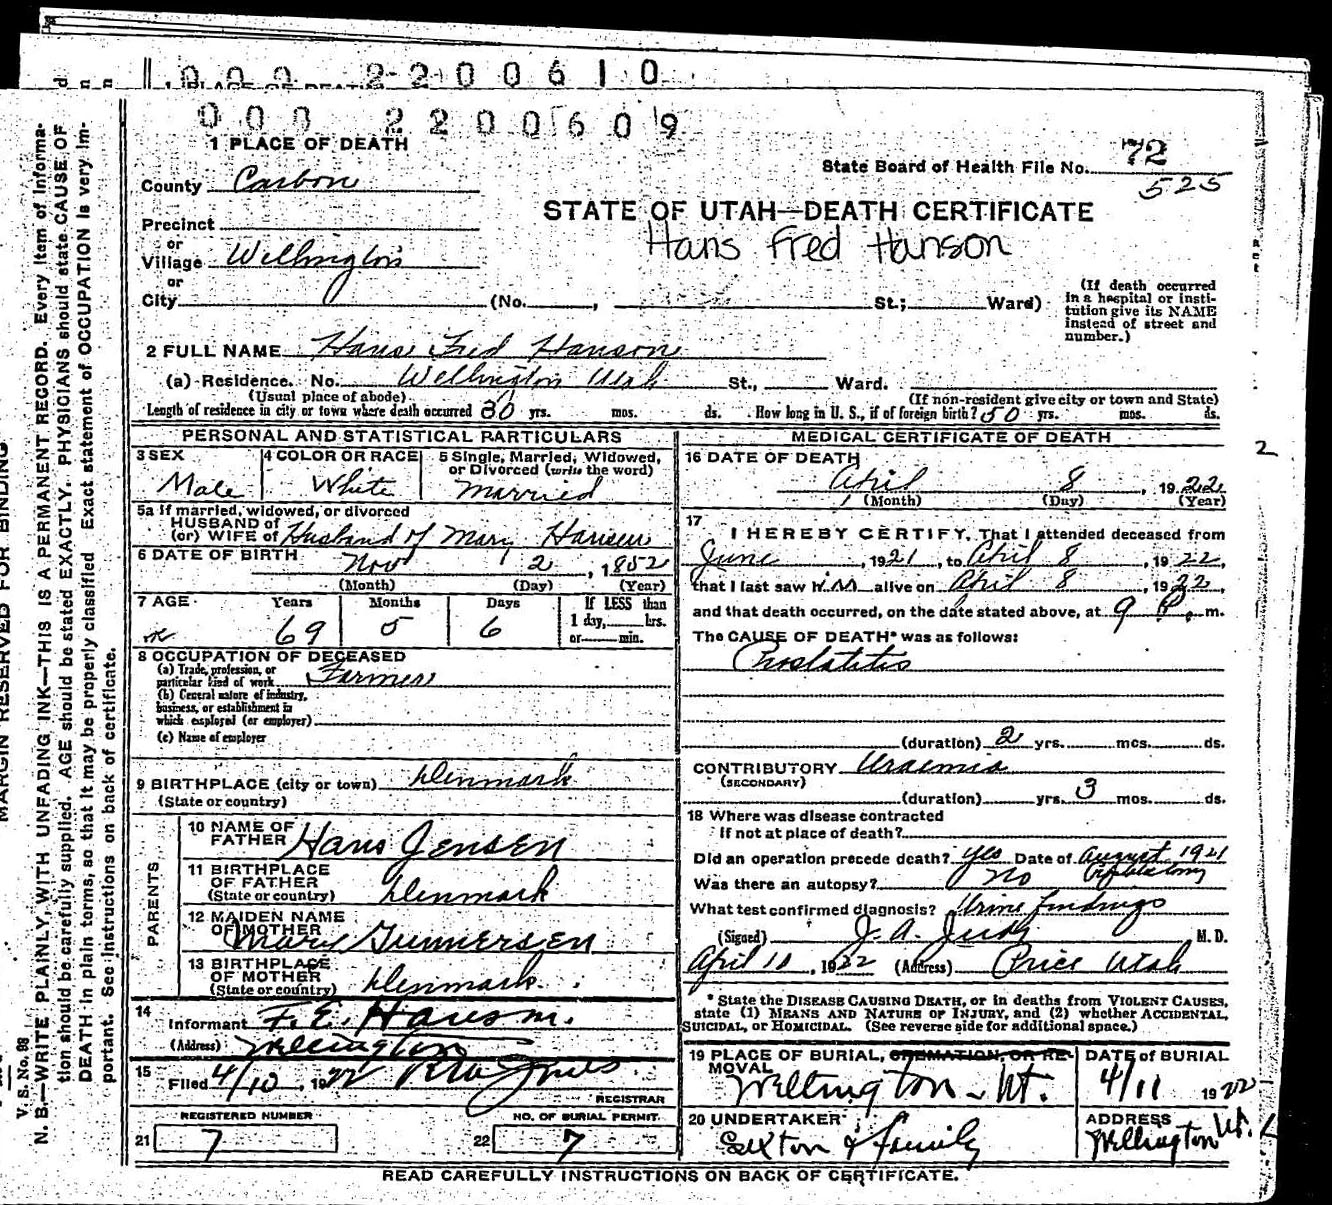 0 0 0 2 2 0 0 6 1 0
0 0 0 2 2 0 0 6 0 9
1 PLACE OF DEATH
State Board of Health File No. 72
525
County Carbon
STATE OF UTAH—DEATH CERTIFICATE
Hans Fred Hanson
Precinct
or
Village Wellington
or
City (No. , St.; Ward)
(If death occurred in a hospital or institution give its NAME instead of street and number.)
2 FULL NAME Hans Fred Hanson
(a) Residence. No. Wellington Utah St., Ward.
(Usual place of abode) (If non-resident give city or town and State)
Length of residence in city or town where death occurred 30 yrs. mos. ds. How long in U. S., if of foreign birth? 50 yrs. mos. ds.
PERSONAL AND STATISTICAL PARTICULARS
3 SEX
Male
4 COLOR OR RACE
White
5 Single, Married, Widowed,
or Divorced (write the word)
Married
5a If married, widowed, or divorced
HUSBAND of
(or) WIFE of Husband of Mary Hansen
6 DATE OF BIRTH Nov 2, 1852
(Month) (Day) (Year)
7 AGE Years Months Days If LESS than
1 day, hrs.
or min.
69 5 6
8 OCCUPATION OF DECEASED
(a) Trade, profession, or
particular kind of work Farmer
(b) General nature of industry,
business, or establishment in
which employed (or employer)
(c) Name of employer
9 BIRTHPLACE (city or town) Denmark
(State or country)
PARENTS
10 NAME OF
FATHER Hans Jensen
11 BIRTHPLACE
OF FATHER
(State or country) Denmark
12 MAIDEN NAME
OF MOTHER Mary Gunnersen
13 BIRTHPLACE
OF MOTHER
(State or country) Denmark
14
Informant F. E. Hanson.
(Address) Wellington
15
Filed 4/10, 1922 Jones
REGISTRAR
REGISTERED NUMBER NO. OF BURIAL PERMIT.
21 7 22 7
MEDICAL CERTIFICATE OF DEATH
16 DATE OF DEATH
April 8, 1922
(Month) (Day) (Year)
17
I HEREBY CERTIFY, That I attended deceased from
June, 1921, to April 8, 1922,
that I last saw him alive on April 8, 1922,
and that death occurred, on the date stated above, at 9 P. m.
The CAUSE OF DEATH* was as follows:
Prostatitis
(duration) 2 yrs. mos. ds.
CONTRIBUTORY Uraemia
(SECONDARY)
(duration) yrs. 3 mos. ds.
18 Where was disease contracted
if not at place of death?
Did an operation precede death? yes Date of August 1921
Was there an autopsy? no
What test confirmed diagnosis? Urine findings
(Signed) J. A. Judy M. D.
April 10, 1922 (Address) Price Utah
* State the DISEASE CAUSING DEATH, or in deaths from VIOLENT CAUSES,
state (1) MEANS AND NATURE OF INJURY, and (2) whether ACCIDENTAL,
SUICIDAL, or HOMICIDAL. (See reverse side for additional space.)
19 PLACE OF BURIAL, CREMATION, OR RE-
MOVAL
Wellington - Ut.
DATE of BURIAL
4/11 1922
20 UNDERTAKER
Sexton & family
ADDRESS
Wellington Ut.
2
READ CAREFULLY INSTRUCTIONS ON BACK OF CERTIFICATE.
MARGIN RESERVED FOR BINDING
V. S. No. 88
N. B.—WRITE PLAINLY, WITH UNFADING INK—THIS IS A PERMANENT RECORD. Every item of informa-
tion should be carefully supplied. AGE should be stated EXACTLY. PHYSICIANS should state CAUSE OF
DEATH in plain terms, so that it may be properly classified. Exact statement of OCCUPATION is very im-
portant. See instructions on back of certificate.